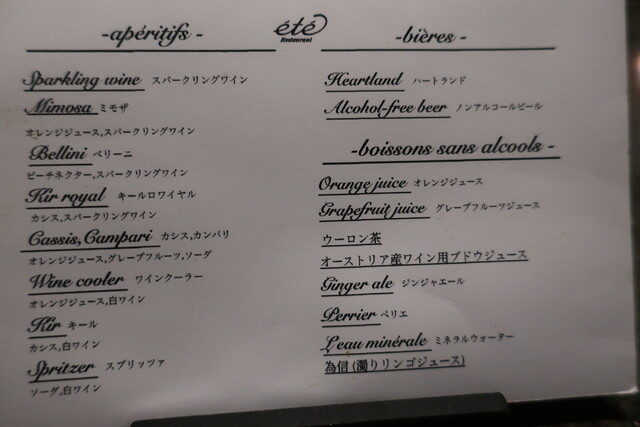 été
Restaurant
-apéritifs -
Sparkling wine スパークリングワイン
Mimosa ミモザ
オレンジジュース,スパークリングワイン
Bellini ベリーニ
ピーチネクター,スパークリングワイン
Kir royal キールロワイヤル
カシス,スパークリングワイン
Cassis,Campari カシス,カンパリ
オレンジジュース,グレープフルーツ,ソーダ
Wine cooler ワインクーラー
オレンジジュース,白ワイン
Kir キール
カシス,白ワイン
Spritzer スプリッツァ
ソーダ,白ワイン
-bières -
Heartland ハートランド
Alcohol-free beer ノンアルコールビール
-boissons sans alcools -
Orange juice オレンジジュース
Grapefruit juice グレープフルーツジュース
ウーロン茶
オーストリア産ワイン用ブドウジュース
Ginger ale ジンジャエール
Perrier ペリエ
L'eau minérale ミネラルウォーター
為信(濁りリンゴジュース)